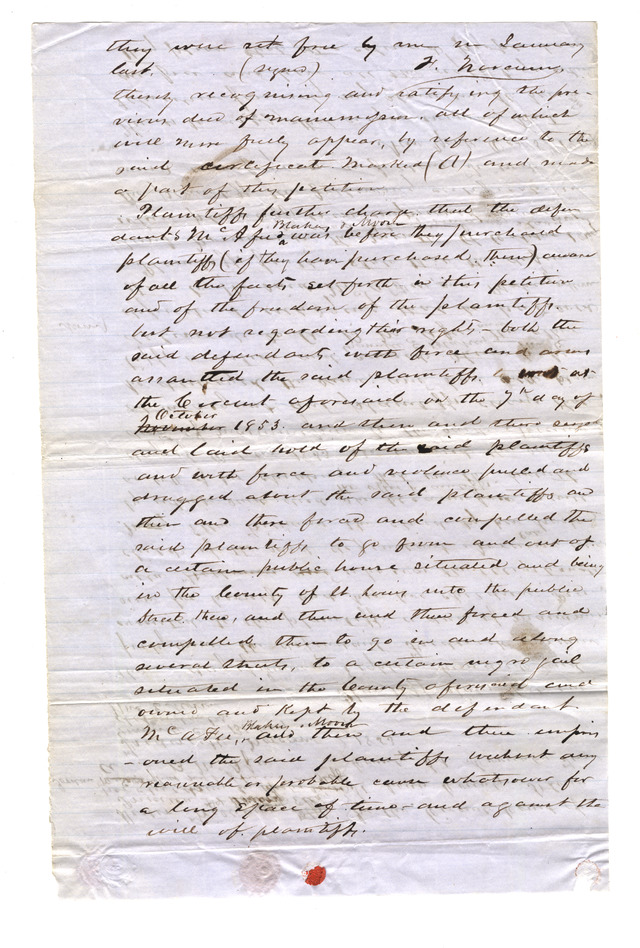 they were set free by me in January
last. (signed) F. Norcum
thereby recognising and ratifying the pre-
vious deed of manumission, all of which
will more fully appear, by reference to the
said certificate marked (A) and made
a part of this petition
Plaintiffs further charge that the defen
Blakey & Moore
dants McAfee was before they purchased
plaintiffs (if they have purchased them) aware
of all the facts set forth in this petition
and of the freedom of the plaintiffs.
but not regarding their rights - both the
said defendants, with force and arms
assaulted the said plaintiffs at
the County aforesaid on the 7th day of
October
November 1853. and then and there seized
and laid hold of the said plaintiffs
and with force and violence pulled and
dragged about the said plaintiffs and
then and there forced and compelled the
said plaintiffs to go from and out of
a certain public house situated and being
in the County of St Louis into the public
Street there, and then and there forced and
compelled them to go in and along
several streets, to a certain negro jail
situated in the County aforesaid and
owned and kept by the defendant
Blakey & Moore
McAfee, and then and there impris
-oned the said plaintiffs without any
reasonable or probable cause whatsoever for
a long space of time - and against the
will of plaintiffs.